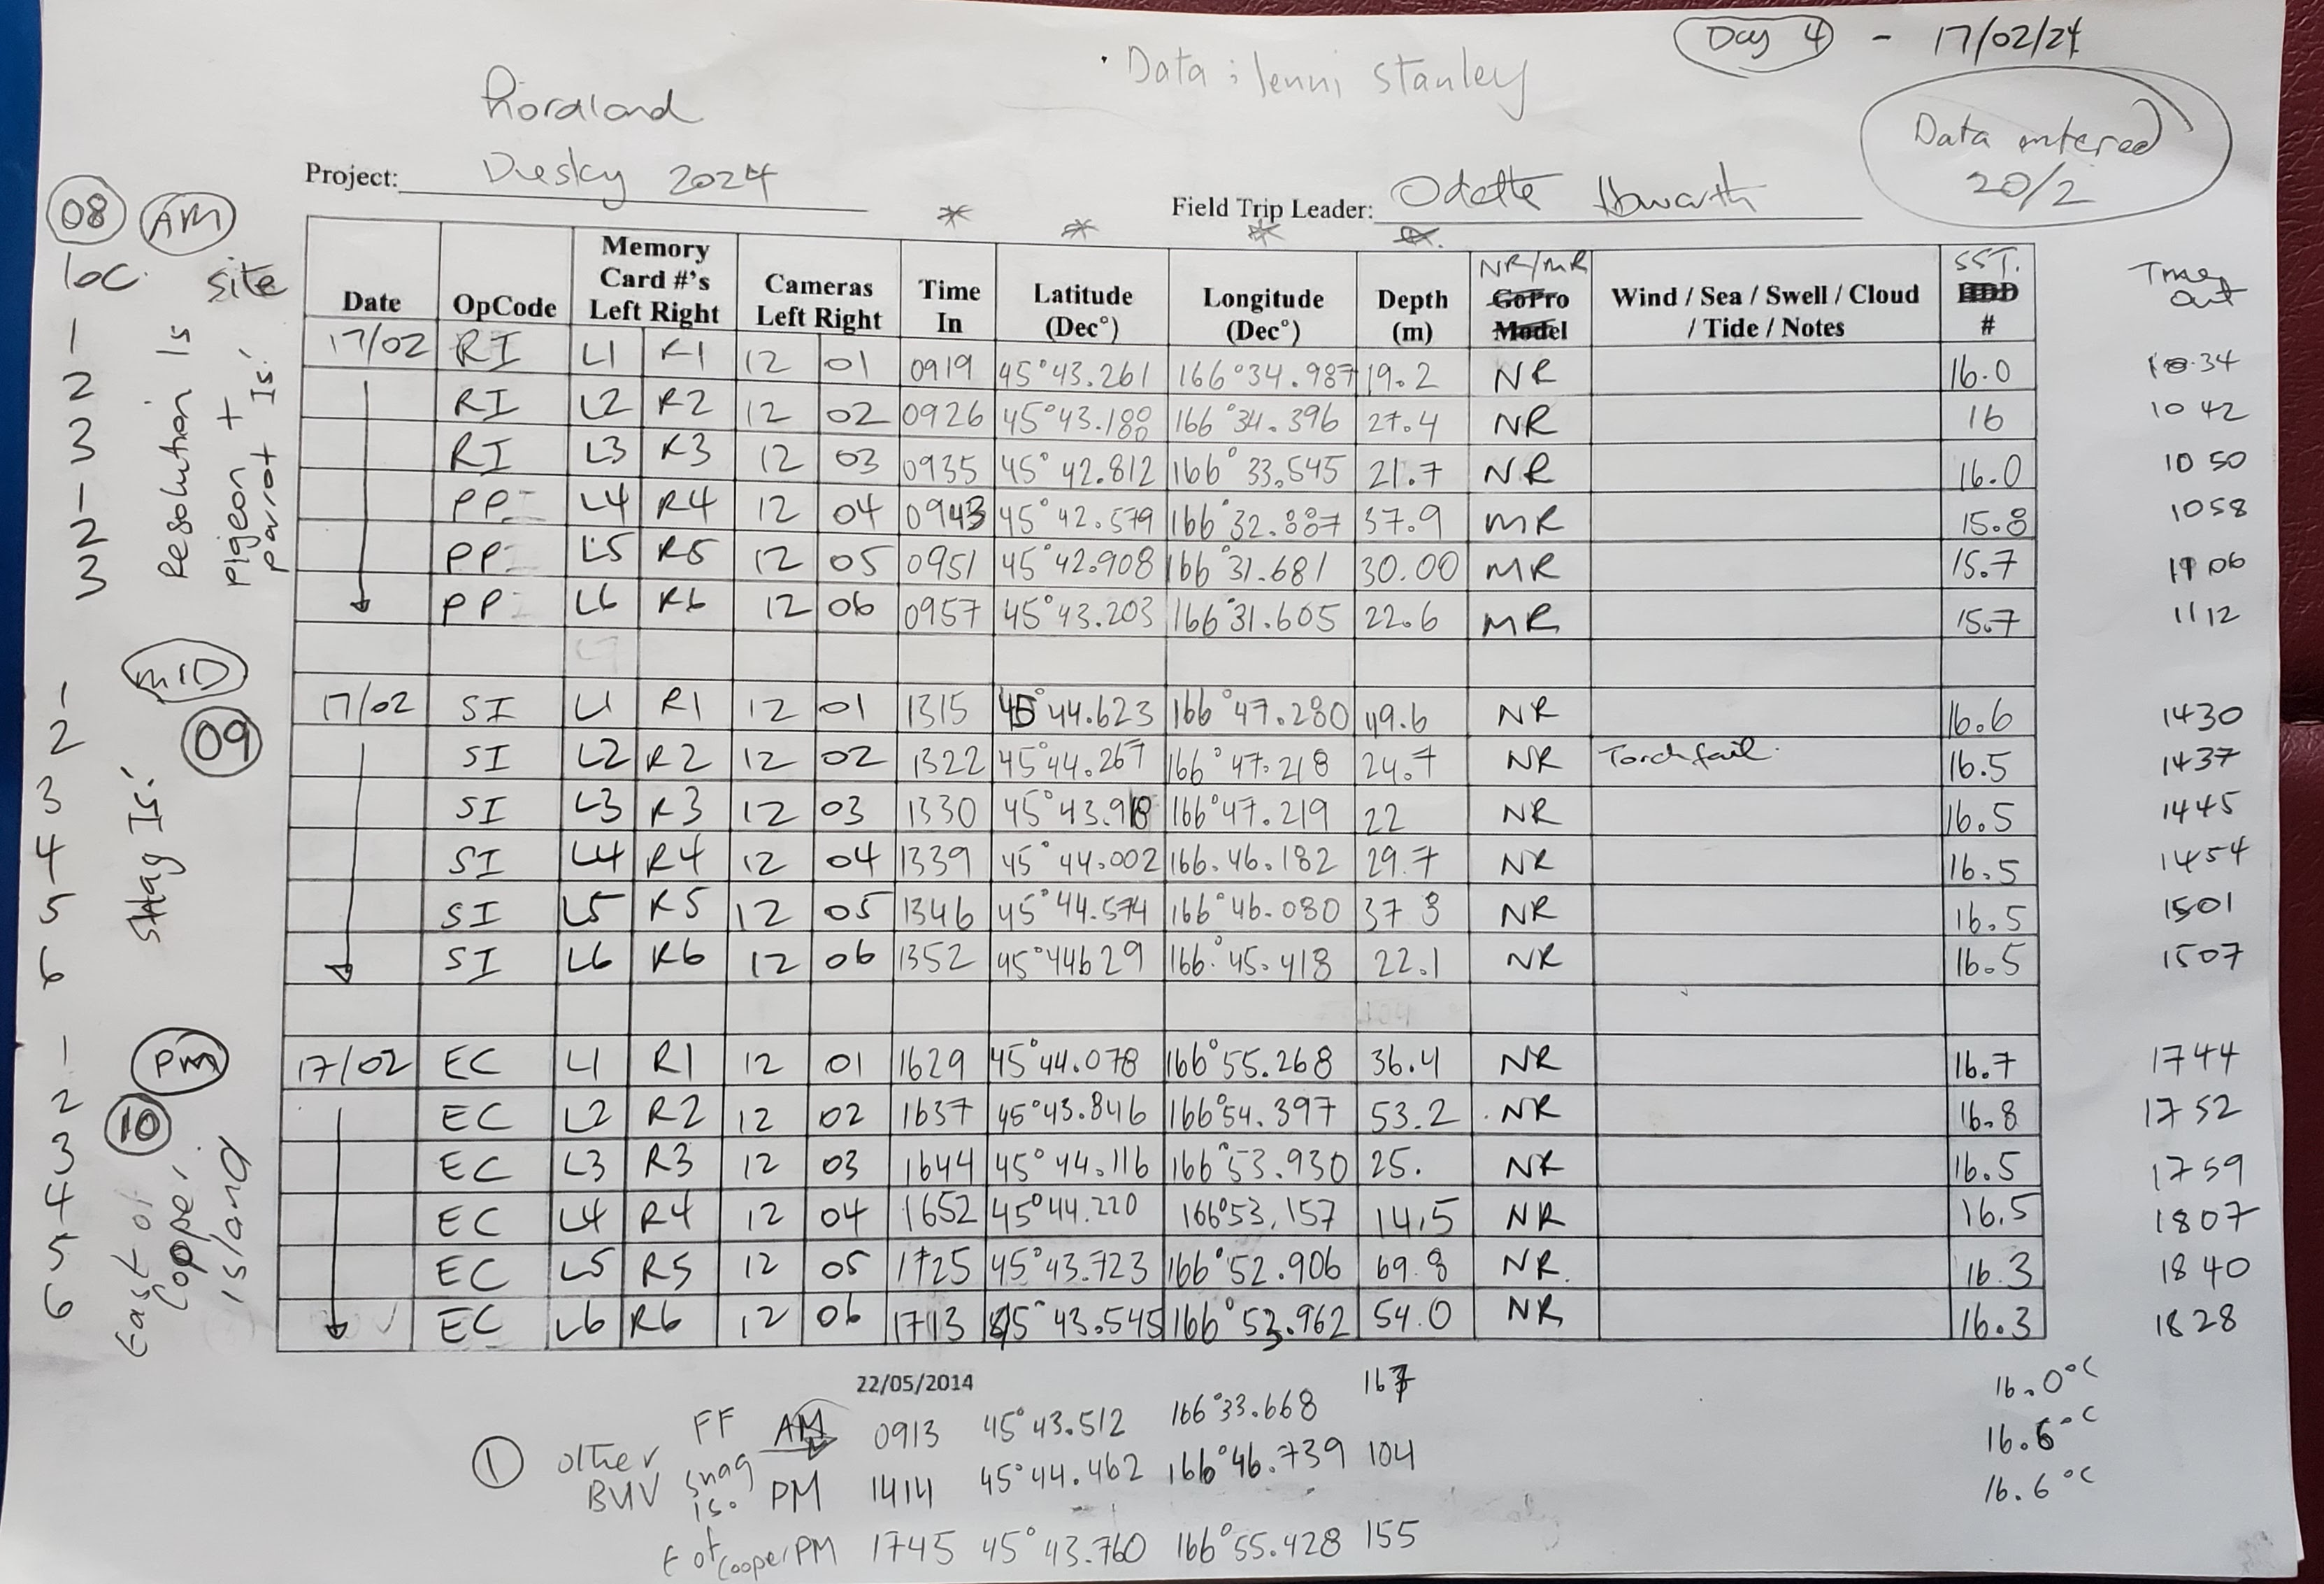 Day 4 - 17/02/24
Data: Jenni Stanley
Fiordland
Data entered
20/2
Project: Dusky 2024
Field Trip Leader: Odette Howarth
08 AM
loc. site
Date OpCode Memory Card #'s Left Right Cameras Left Right Time In Latitude (Dec°) Longitude (Dec°) Depth (m) NR/MR GoPro Model Wind / Sea / Swell / Cloud / Tide / Notes SST. HDD # Time out
1 17/02 RI L1 R1 12 01 0919 45°43.261 166°34.987 19.2 NR 16.0 10 34
2 RI L2 R2 12 02 0926 45°43.180 166°34.396 27.4 NR 16 10 42
3 RI L3 R3 12 03 0935 45°42.812 166°33.545 21.7 NR 16.0 10 50
1 PP L4 R4 12 04 0943 45°42.579 166°32.887 37.9 MR 15.8 1058
2 PP L5 R5 12 05 0951 45°42.908 166°31.681 30.00 MR 15.7 11 06
3 PP L6 R6 12 06 0957 45°43.203 166°31.605 22.6 MR 15.7 11 12
Resolution Is
Pigeon + Parrot Is.
MID
09
Stag Is.
1 17/02 SI L1 R1 12 01 1315 45°44.623 166°47.280 49.6 NR 16.6 1430
2 SI L2 R2 12 02 1322 45°44.267 166°47.218 24.7 NR Torch fail. 16.5 1437
3 SI L3 R3 12 03 1330 45°43.918 166°47.219 22 NR 16.5 1445
4 SI L4 R4 12 04 1339 45°44.002 166.46.182 29.7 NR 16.5 1454
5 SI L5 R5 12 05 1346 45°44.574 166°46.080 37 8 NR 16.5 1501
6 SI L6 R6 12 06 1352 45°44629 166°45.418 22.1 NR 16.5 1507
PM
10
East of Cooper Island
1 17/02 EC L1 R1 12 01 1629 45°44.078 166°55.268 36.4 NR 16.7 1744
2 EC L2 R2 12 02 1637 45°43.846 166°54.397 53.2 NR 16.8 1752
3 EC L3 R3 12 03 1644 45°44.116 166°53.930 25. NR 16.5 1759
4 EC L4 R4 12 04 1652 45°44.220 166°53.157 14.5 NR 16.5 1807
5 EC L5 R5 12 05 1725 45°43.723 166°52.906 69.8 NR. 16.3 1840
6 EC L6 R6 12 06 1713 45°43.545 166°53.962 54.0 NR 16.3 1828
22/05/2014
① other BUV
FF AM 0913 45°43.512 166°33.668 167 16.0°C
Snag is. PM 1414 45°44.462 166°46.739 104 16.6°C
E of Cooper PM 1745 45°43.760 166°55.428 155 16.6°C